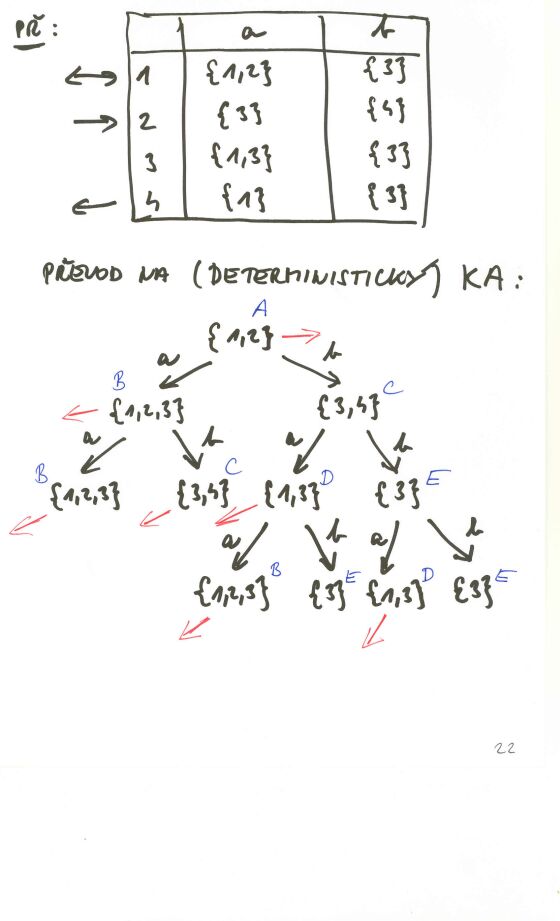 PŘ:
a b
↔ 1 {1,2} {3}
→ 2 {3} {4}
3 {1,3} {3}
← 4 {1} {3}
PŘEVOD NA (DETERMINISTICKÝ) KA:
A
{1,2}
a b
B {1,2,3} {3,4} C
a b a b
B {1,2,3} {3,4} C {1,3} D {3} E
a b a b
{1,2,3} B {3} E {1,3} D {3} E
22